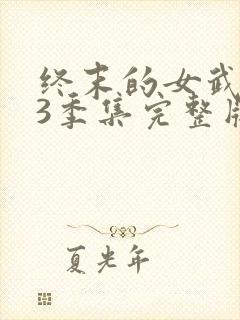 终末的女武
3季集完整
夏光年